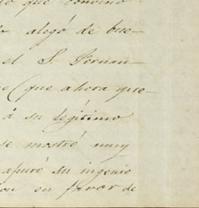 que convino
alegó de bue-
el S. Fernan-
e (que ahora que-
á su legítimo
se mostró muy
apuró su ingenio
en favor de